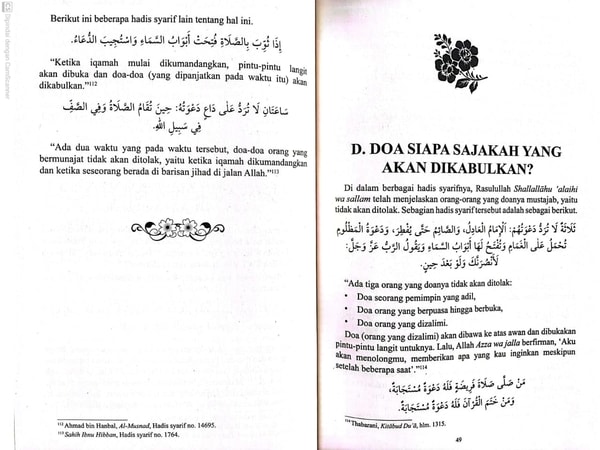 CS Dipindai dengan CamScanner
Berikut ini beberapa hadis syarif lain tentang hal ini.
إِذَا ثُوِّبَ بِالصَّلَاةِ فُتِحَتْ أَبْوَابُ السَّمَاءِ وَاسْتُجِيبَ الدُّعَاءُ.
“Ketika iqamah mulai dikumandangkan, pintu-pintu langit
akan dibuka dan doa-doa (yang dipanjatkan pada waktu itu) akan
dikabulkan.”112
سَاعَتَانِ لَا تُرَدُّ عَلَى دَاعٍ دَعْوَتُهُ: حِينَ تُقَامُ الصَّلَاةُ وَفِي الصَّفِّ
فِي سَبِيلِ اللهِ.
“Ada dua waktu yang pada waktu tersebut, doa-doa orang yang
bermunajat tidak akan ditolak, yaitu ketika iqamah dikumandangkan
dan ketika seseorang berada di barisan jihad di jalan Allah.”113
112 Ahmad bin Hanbal, Al-Musnad, Hadis syarif no. 14695.
113 Sahih Ibnu Hibban, Hadis syarif no. 1764.
D. DOA SIAPA SAJAKAH YANG
AKAN DIKABULKAN?
Di dalam berbagai hadis syarifnya, Rasulullah Shallallâhu ‘alaihi
wa sallam telah menjelaskan orang-orang yang doanya mustajab, yaitu
tidak akan ditolak. Sebagian hadis syarif tersebut adalah sebagai berikut.
ثَلَاثَةٌ لَا تُرَدُّ دَعْوَتُهُمْ: اَلْإِمَامُ الْعَادِلُ، وَالصَّائِمُ حَتَّى يُفْطِرَ، وَدَعْوَةُ الْمَظْلُومِ
تُحْمَلُ عَلَى الْغَمَامِ وَتُفْتَحُ لَهَا أَبْوَابُ السَّمَاءِ وَيَقُولُ الرَّبُّ عَزَّ وَجَلَّ:
لَأَنْصُرَنَّكَ وَلَوْ بَعْدَ حِينٍ.
“Ada tiga orang yang doanya tidak akan ditolak:
• Doa seorang pemimpin yang adil,
• Doa orang yang berpuasa hingga berbuka,
• Doa orang yang dizalimi.
Doa (orang yang dizalimi) akan dibawa ke atas awan dan dibukakan
pintu-pintu langit untuknya. Lalu, Allah Azza wa jalla berfirman, ‘Aku
akan menolongmu, memberikan apa yang kau inginkan meskipun
setelah beberapa saat’.”114
مَنْ صَلَّى صَلَاةَ فَرِيضَةٍ فَلَهُ دَعْوَةٌ مُسْتَجَابَةٌ،
وَمَنْ خَتَمَ الْقُرْآنَ فَلَهُ دَعْوَةٌ مُسْتَجَابَةٌ.
114 Thabarani, Kitâbud Du‘â, hlm. 1315.
49